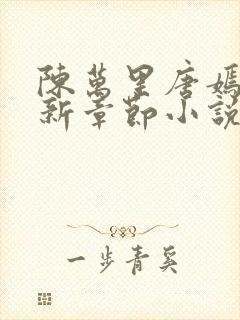 陳萬里唐嫣
新章節小說
一步青奚